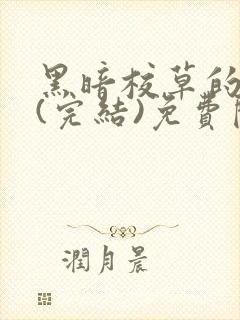 黑暗校草的
(完結)免費
潤月晨